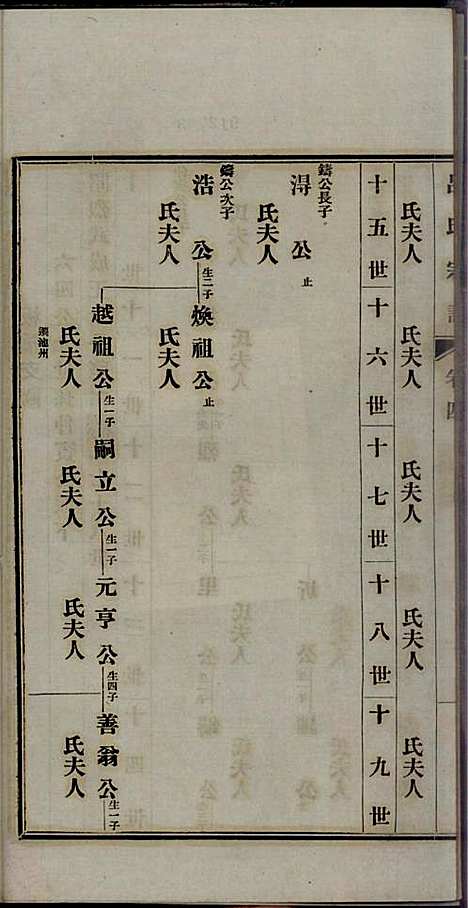 氏夫人
氏夫人
氏夫人
氏夫人
氏夫人
十五世
十六世
十七世
十八世
十九世
鑄公長子
淂公止
氏夫人
鑄公次子
浩公生二子
煥祖公止
氏夫人
氏夫人
越祖公生一子
嗣立公生一子
元亨公生四子
善翁公生一子
遷池州
氏夫人
氏夫人
氏夫人
氏夫人